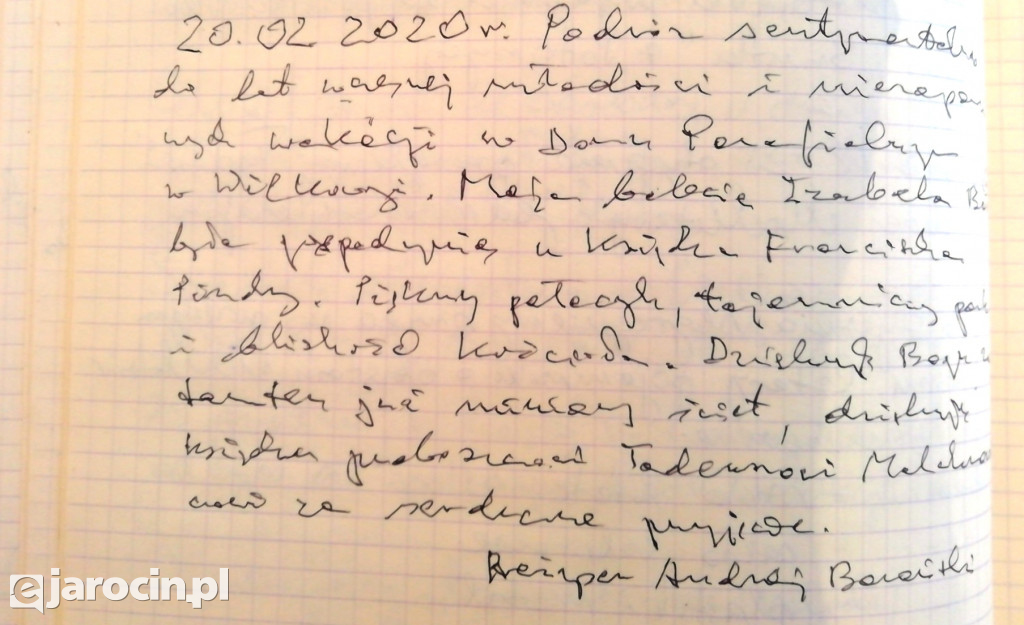 20.02 2020 r. Podróż sentymentalna
do lat wczesnej młodości i niezapom
nych wakacji w Domu Parafialnym
w Wilkowyi. Moja babcia Izabela
była gospodynią u Księdza Franciszka
Piękny pałacyk, tajemniczy
i bliskość Kościoła. Dziękuję Bogu
tamten już miniony świat, dziękuję
księdzu proboszczowi Tadeuszowi
za serdeczne przyjęcie.
Reżyser Andrzej Barański
ejarocin.pl